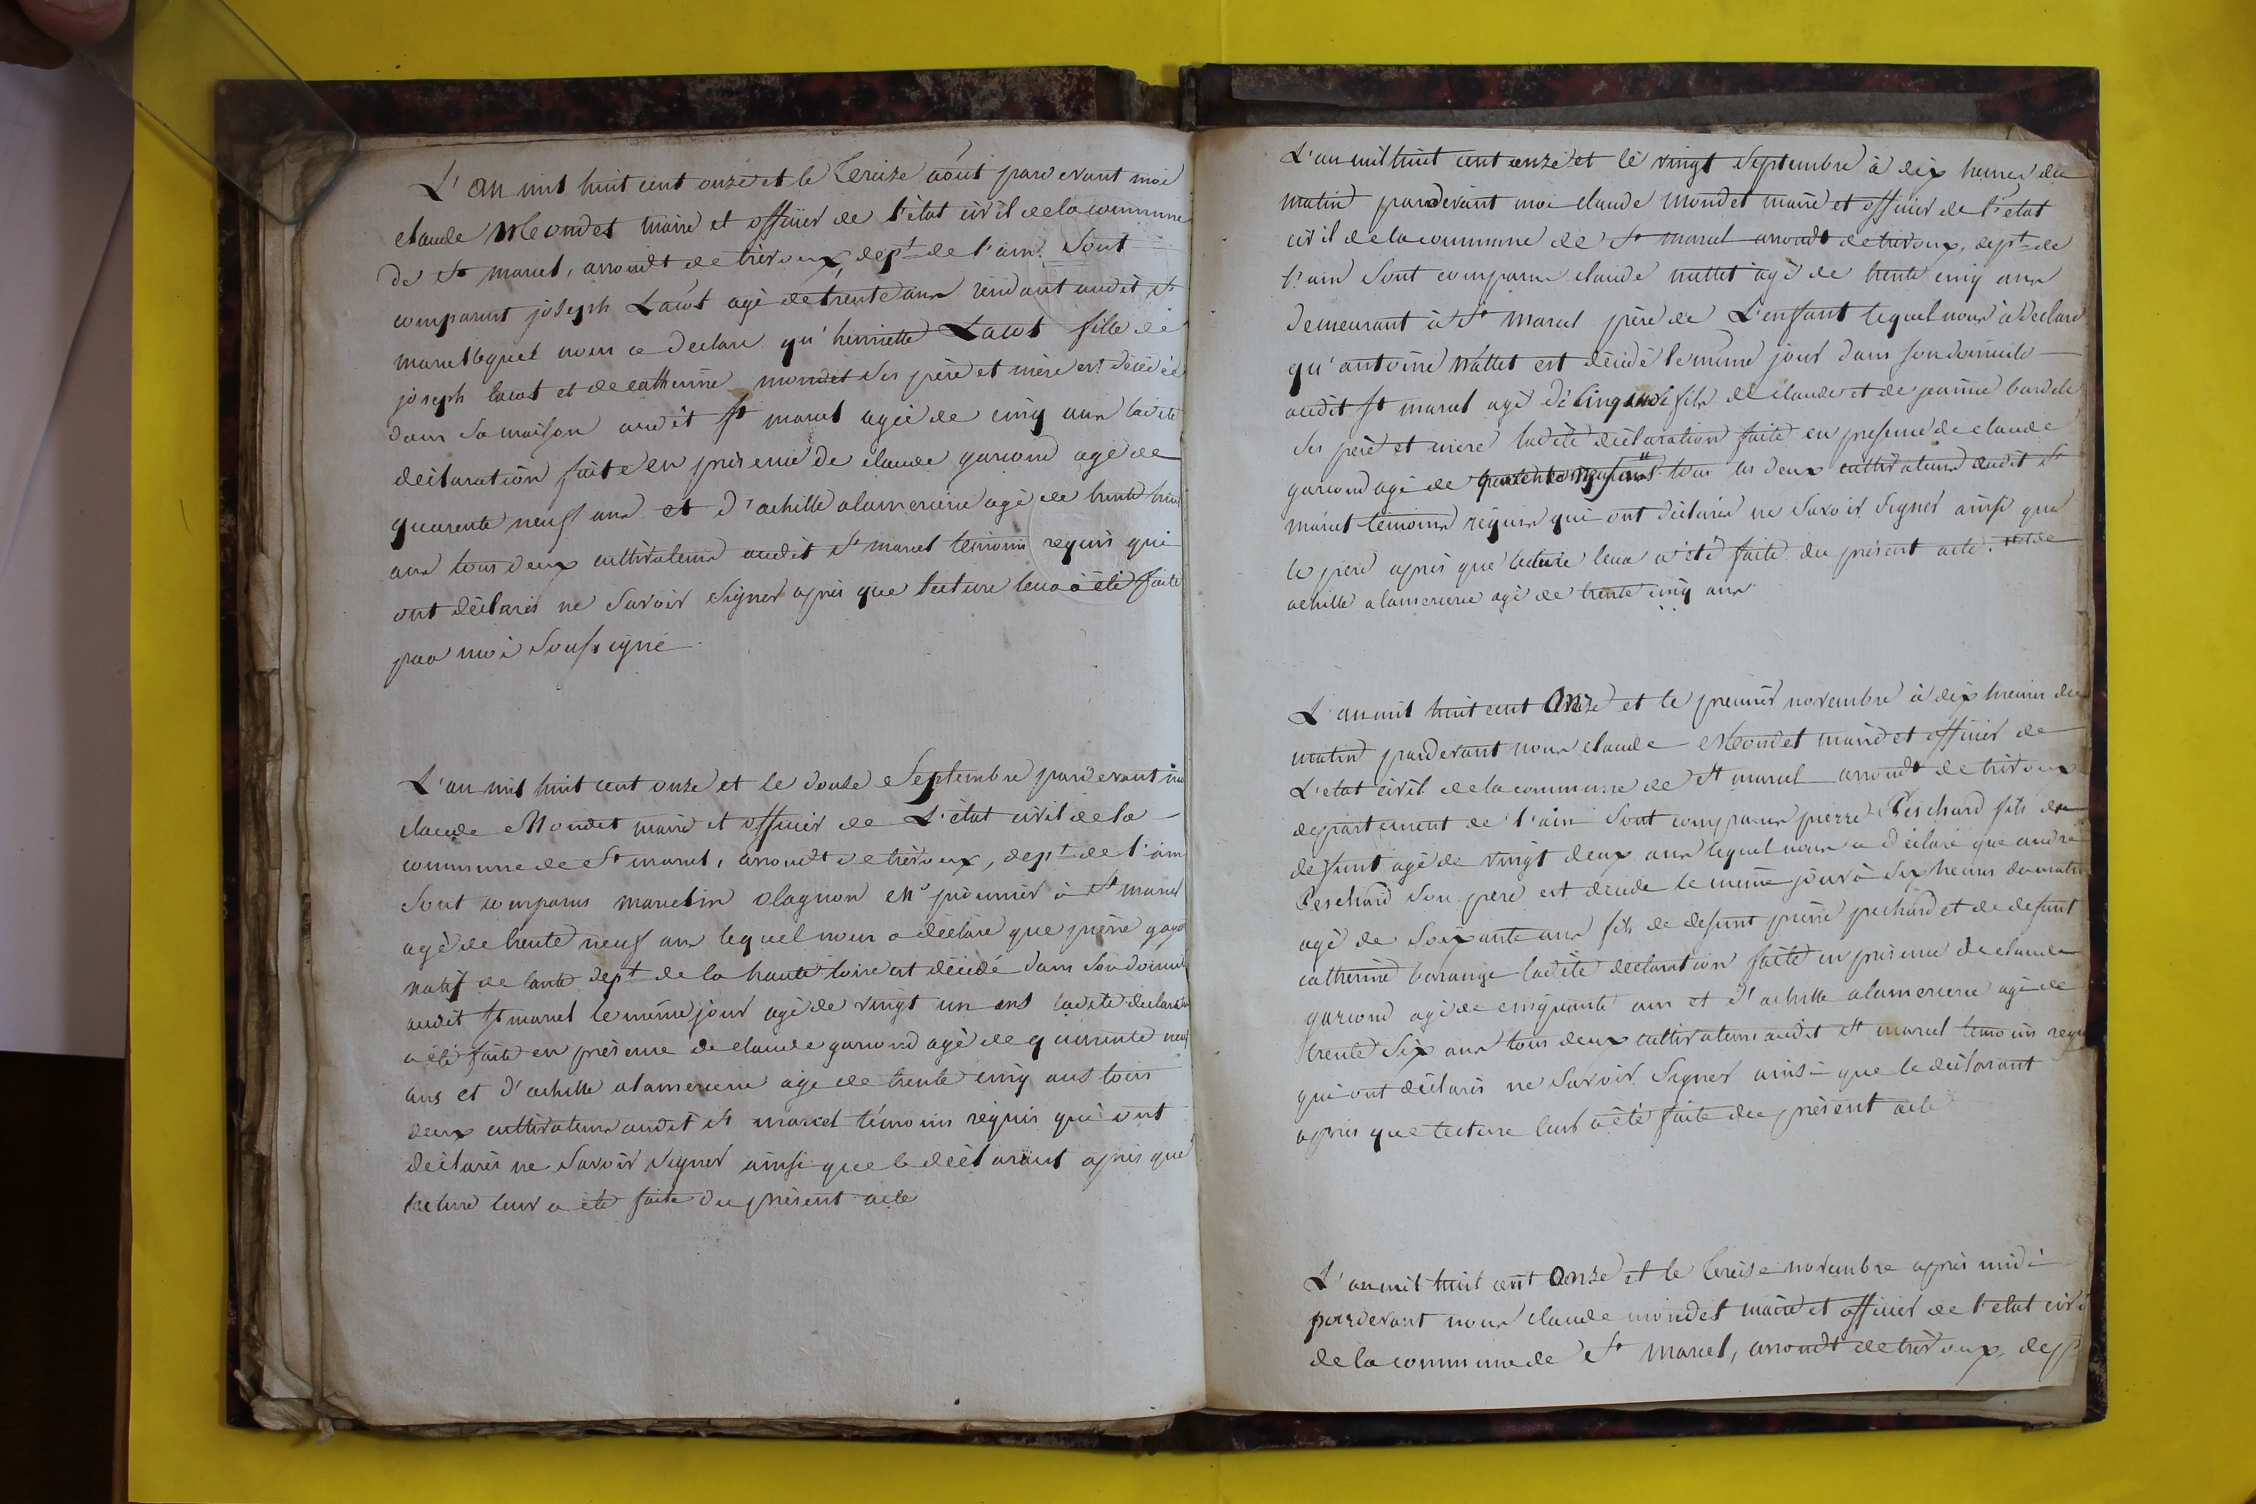 L'an mil huit cent onze et le treize août pardevant moi
claude Mondet maire et officier de l'état civil de la commune
de St marcel, arrondt de trévoux, dept de l'ain. Sont
comparus joseph Lacot agé de trente ans résidant audit St
marcel lequel nous a declaré qu'henriette Lacot fille de
joseph lacot et de catherine mondet ses père et mère est décédée
dans sa maison audit St marcel agée de cinq ans ladite
déclaration faite en présence de claude garioud agé de
quarente neuf ans et d'achille alamercerie agé de trente huit
ans tous deux cultivateurs audit St marcel temoins requis qui
ont déclarés ne savoir signer après que lecture leur a été faite
par moi soussigné
L'an mil huit cent onze et le douze Septembre pardevant moi
claude Mondet maire et officier de L'état civil de la
commune de St marcel, arrondt de trévoux, dept de l'ain
Sont comparus marcelin olagnon à St marcel
agé de trente neuf ans lequel nous a déclaré que pierre
natif de dept de la haute loire est décédé dans son domicile
audit St marcel le même jour agé de vingt un ans ladite declaration
a été faite en présence de claude garioud agé de quarente neuf
ans et d'achille alamercerie agé de trente cinq ans tous
deux cultivateurs audit St marcel témoins requis qui ont
déclarés ne savoir signer ainsi que le déclarant après que
lecture leur a été faite du présent acte
L'an mil huit cent onze et le vingt Septembre à dix heures du
matin pardevant moi claude mondet maire et officier de l'état
civil de la commune de St marcel arrondt de trévoux, dept de
l'ain Sont comparus claude mettet agé de trente cinq ans
demeurant à St marcel père de L'enfant lequel nous à declaré
qu'antoine est décédé le même jour dans son domicile
audit St marcel agé de fils de claude et de jeanne
ses père et mère ladite déclaration faite en présence de claude
garioud agé de tous les deux cultivateurs audit St
marcel temoins réquis qui ont déclarés ne savoir signer ainsi que
le père après que lecture leur a été faite du présent acte. et de
achille alamercerie agé de trente cinq ans
L'an mil huit cent Onze et le premier novembre à dix heures du
matin pardevant nous claude Mondet maire et officier de
L'état civil de la commune de St marcel arrondt de trévoux
département de l'ain Sont comparus pierre Peschard fils du
defunt agé de vingt deux ans lequel nous a déclaré que andré
Peschard son père est décédé le même jour à six heures du matin
agé de soixante ans fils de defunt pierre pechard et de defunt
catherine barange ladite declaration faite en présence de claude
garioud agé de cinquante ans et d'achille alamercerie agé de
trente six ans tous deux cultivateurs audit St marcel temoins requis
qui ont déclarés ne savoir signer ainsi que le déclarant
après que lecture leur a été faite du présent acte
L'an mil huit cent Onze et le treize novembre après midi
pardevant nous claude mondet maire et officier de l'état civil
de la commune de St marcel, arrondt de trévoux, dept